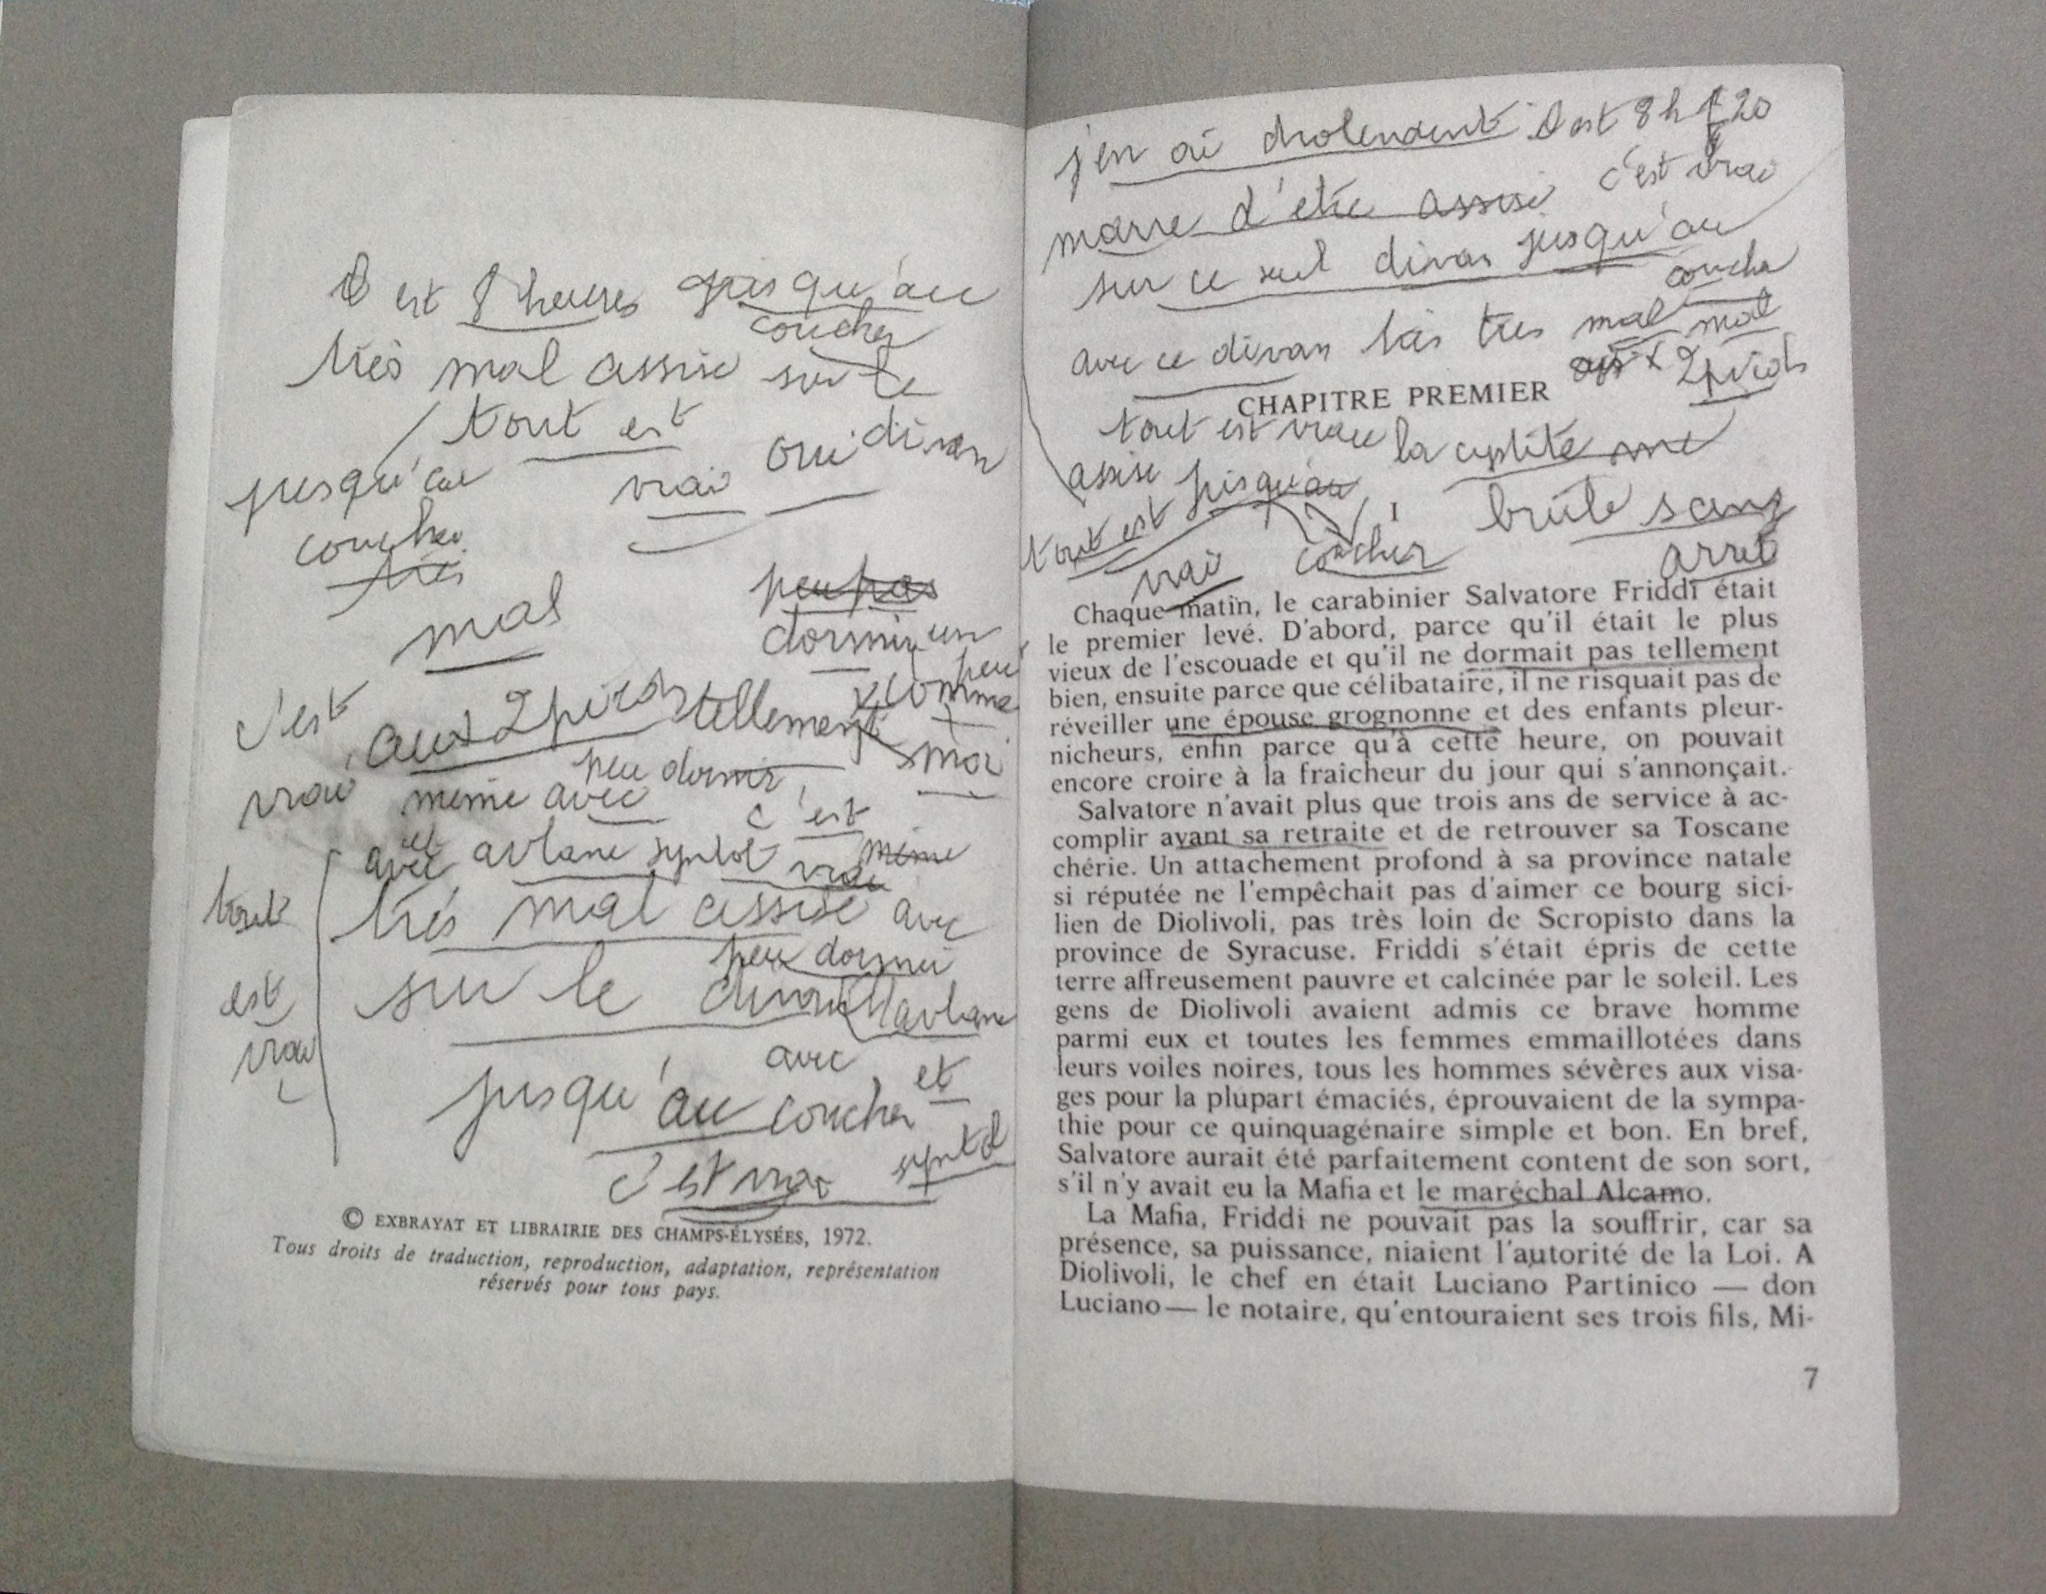 est 8 heures jusqu'au
coucher
très mal assise sur le
tout est
divan
oui
vrai
jusqu'au
coucher
très
mal
peu pas
dormir un
peu
c'est
aux 2 tellement comme
moi
vrai
peu dormir
même avec
c'est
et
avec même
vrai
tout
très mal assise avec
peu dormir
est
sur le divan
vrai
avec
et
jusqu'au coucher
c'est vrai
© EXBRAYAT ET LIBRAIRIE DES CHAMPS-ÉLYSÉES, 1972.
Tous droits de traduction, reproduction, adaptation, représentation
réservés pour tous pays.
j'en ai est 8 h 20
c'est vrai
marre d'etre assise
sur ce seul divan jusqu'au
coucher
avec ce divan très mal mal
2
CHAPITRE PREMIER
tout est la cystite me
assise jusqu'au
I
brûle sans
tout est
arret
vrai coucher
Chaque matin, le carabinier Salvatore Friddi était
le premier levé. D'abord, parce qu'il était le plus
vieux de l'escouade et qu'il ne dormait pas tellement
bien, ensuite parce que célibataire, il ne risquait pas de
réveiller une épouse grognonne et des enfants pleur-
nicheurs, enfin parce qu'à cette heure, on pouvait
encore croire à la fraîcheur du jour qui s'annonçait.
Salvatore n'avait plus que trois ans de service à ac-
complir avant sa retraite et de retrouver sa Toscane
chérie. Un attachement profond à sa province natale
si réputée ne l'empêchait pas d'aimer ce bourg sici-
lien de Diolivoli, pas très loin de Scropisto dans la
province de Syracuse. Friddi s'était épris de cette
terre affreusement pauvre et calcinée par le soleil. Les
gens de Diolivoli avaient admis ce brave homme
parmi eux et toutes les femmes emmaillotées dans
leurs voiles noires, tous les hommes sévères aux visa-
ges pour la plupart émaciés, éprouvaient de la sympa-
thie pour ce quinquagénaire simple et bon. En bref,
Salvatore aurait été parfaitement content de son sort,
s'il n'y avait eu la Mafia et le maréchal Alcamo.
La Mafia, Friddi ne pouvait pas la souffrir, car sa
présence, sa puissance, niaient l'autorité de la Loi. A
Diolivoli, le chef en était Luciano Partinico — don
Luciano — le notaire, qu'entouraient ses trois fils, Mi-
7